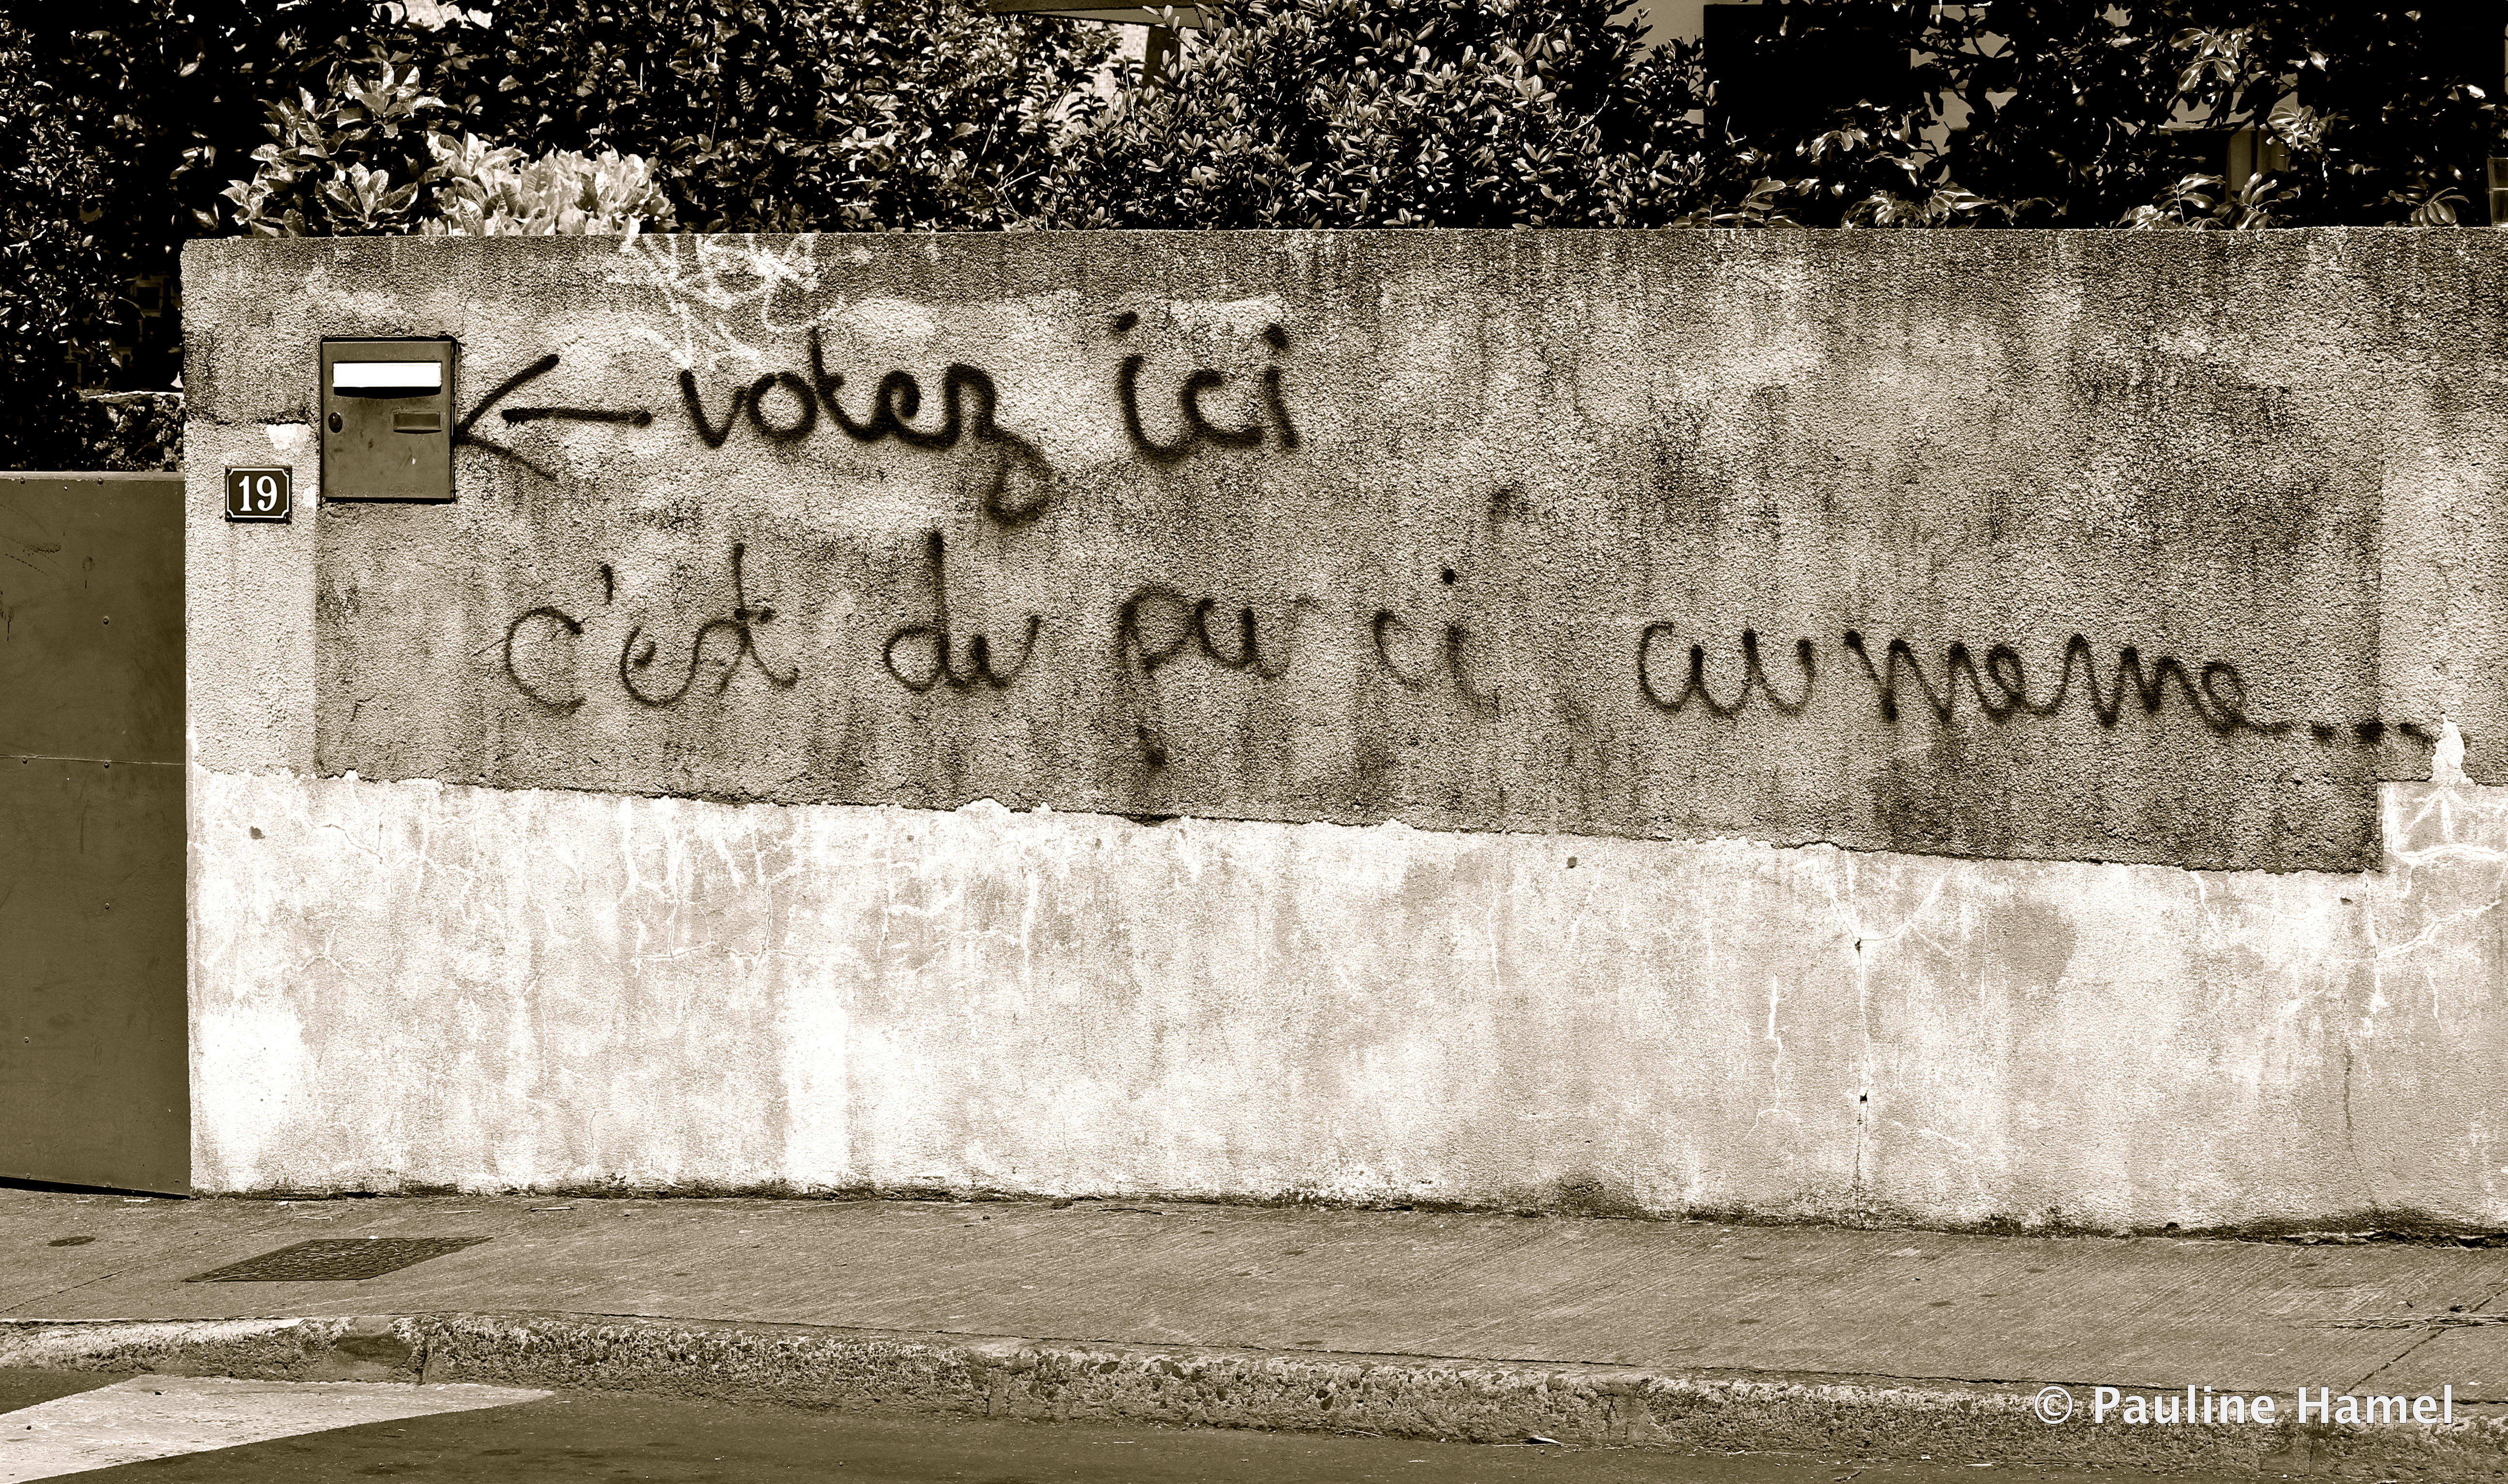 ← votez ici
19
c'est du pu ci au meme...
© Pauline Hamel